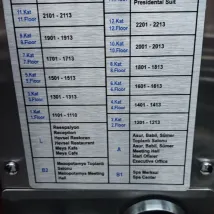 Presidental Suit
11.Kat
11.Floor
2101 - 2113
12.Kat
12.Floor
2201 - 2213
9.Kat
9.Floor
1901 - 1913
10.Kat
10.Floor
2001 - 2013
7.Kat
7.Floor
1701 - 1713
8.Kat
8.Floor
1801 - 1813
5.Kat
5.Floor
1501 - 1513
6.Kat
6.Floor
1601 - 1613
3.Kat
3.Floor
1301 - 1313
4.Kat
4.Floor
1401 - 1413
1.Kat
1.Floor
1101 - 1113
2.Kat
2.Floor
1201 - 1213
L
Resepsiyon
Reception
Hevsel Restoran
Hevsel Restaurant
Meya Kafe
Meya Cafe
A
Asur, Babil, Sümer
Toplantı Salonu
Asur, Babil, Sümer
Meeting Hall
B2
Mezopotamya Toplantı
Salonu
Mezopotamya Meeting
Hall
B1
Spa Merkezi
Spa Center